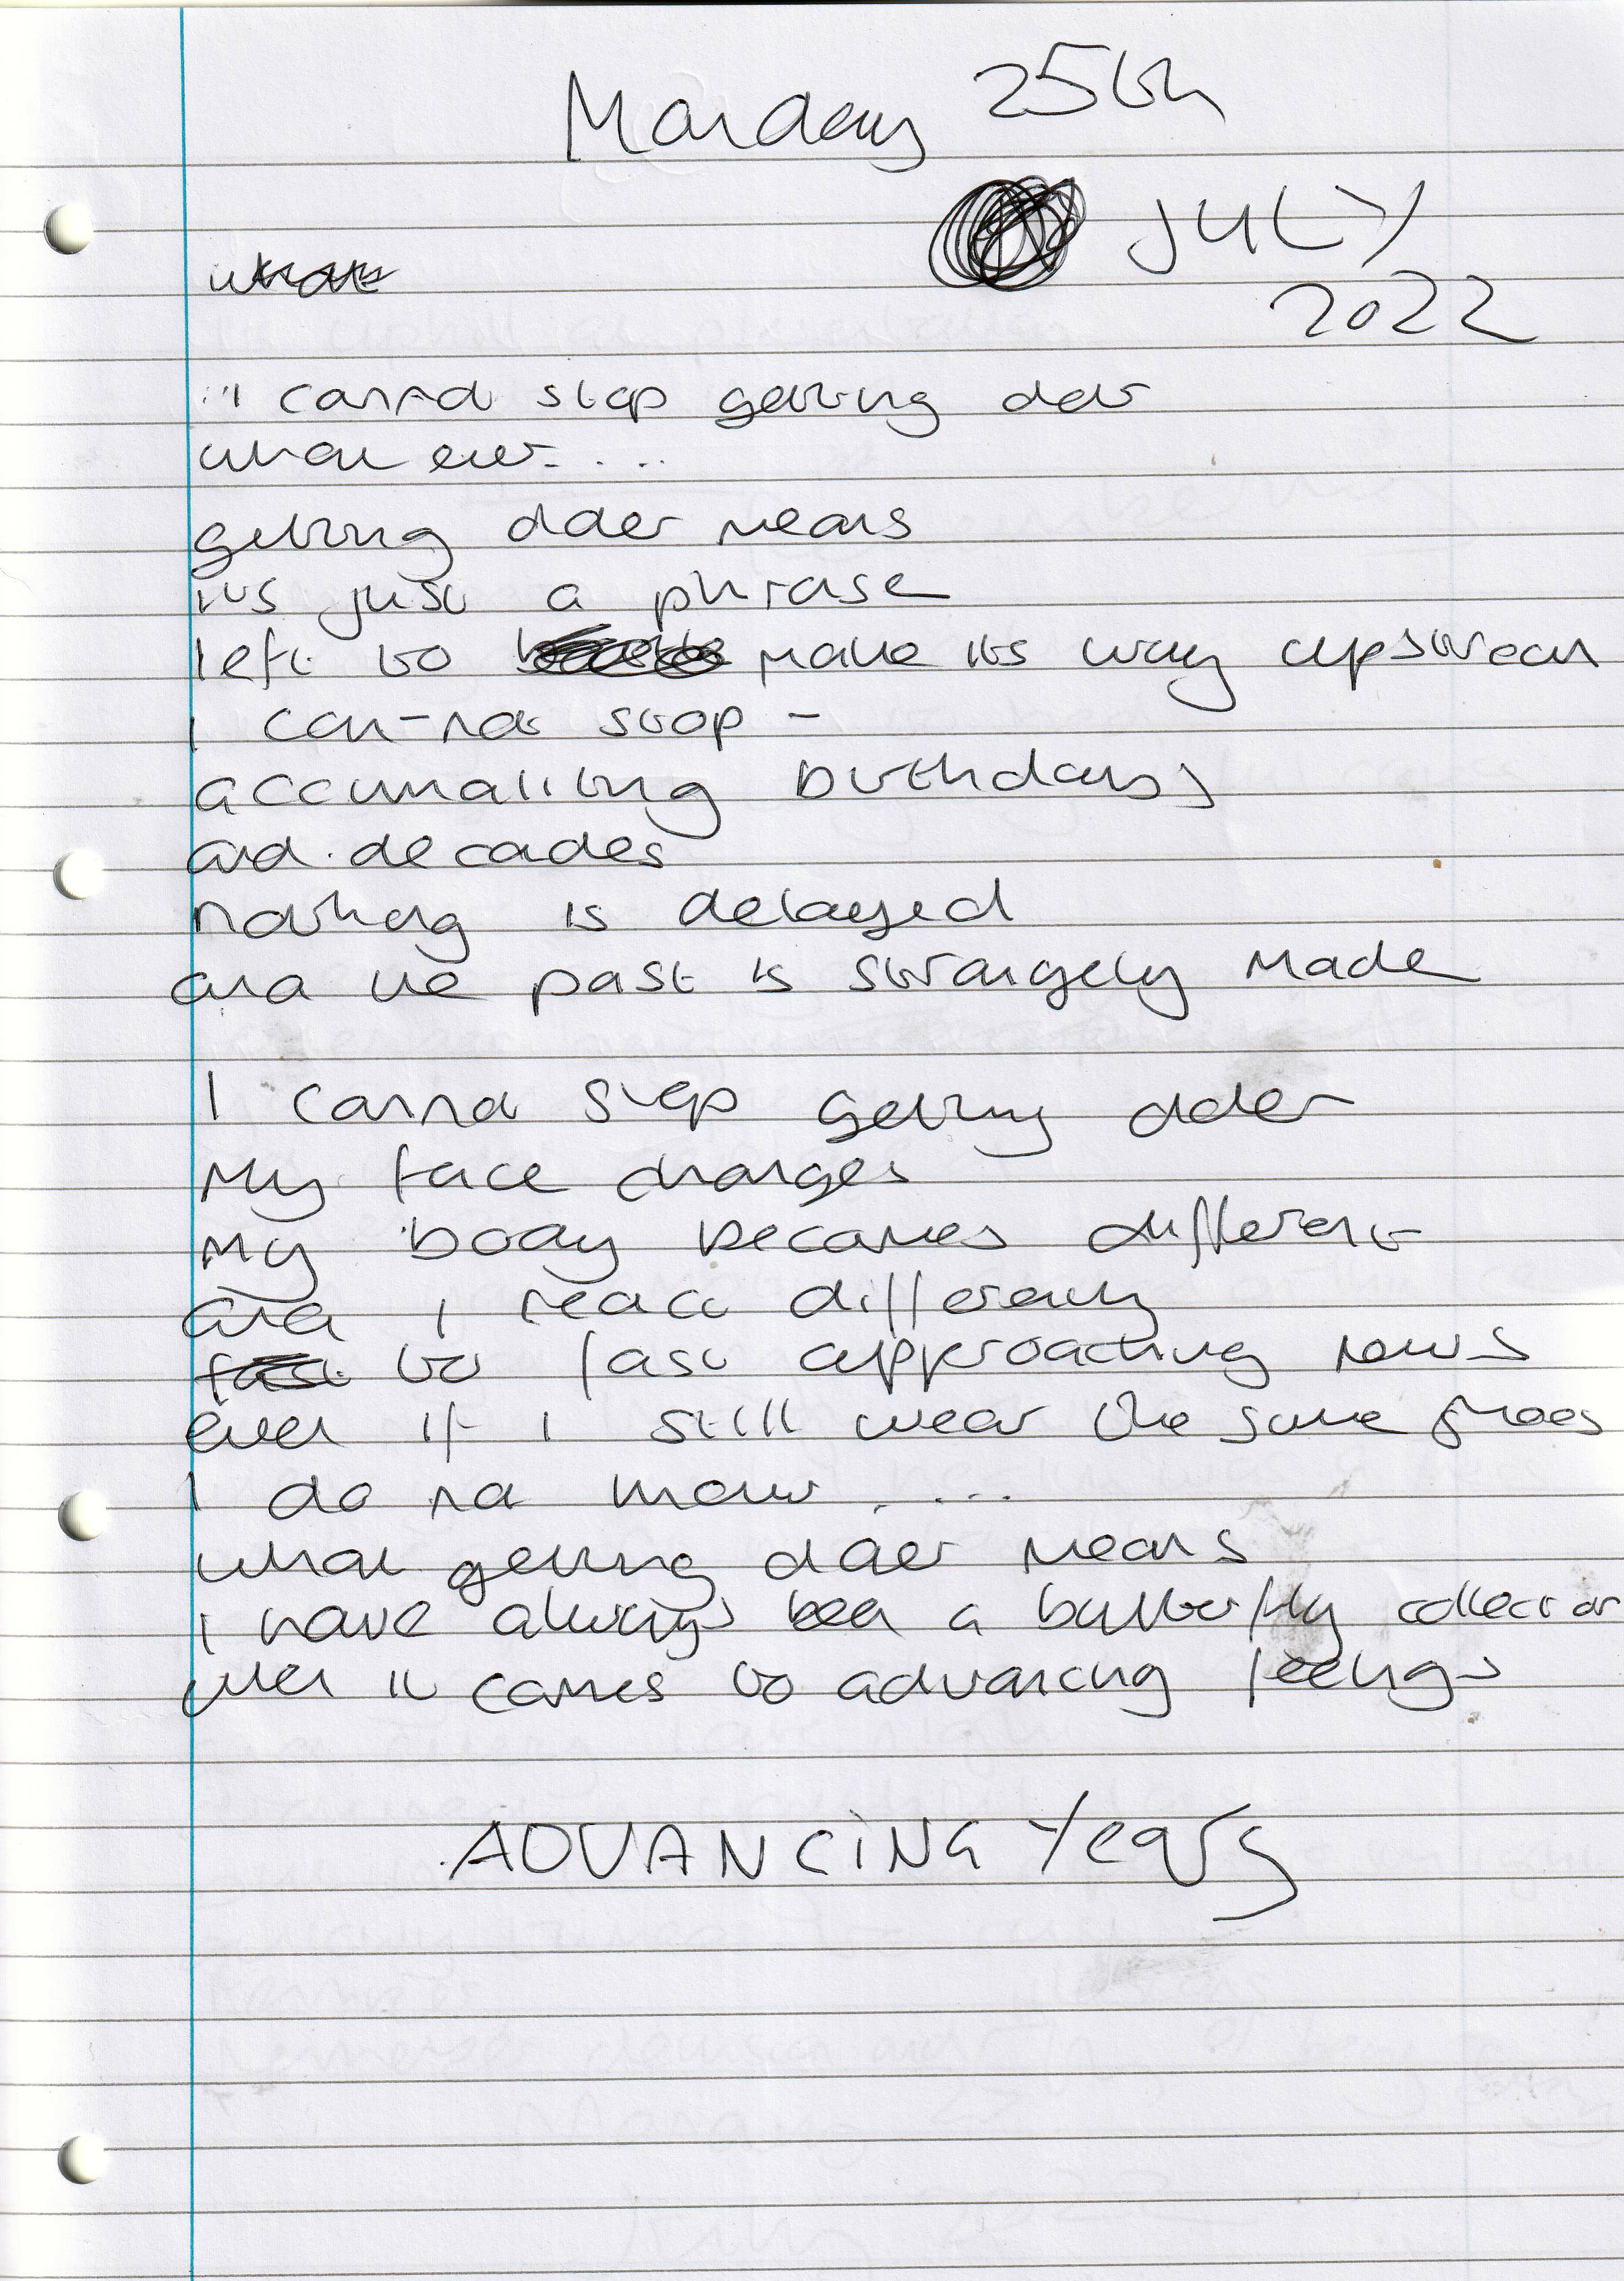 Monday 25th
July
2022
I cannot stop getting older
what ever....
getting older means
its just a phrase
left to make its way upstream
I can-not stop -
accumaliting birthdays
and decades
nothing is delayed
and the past is strangely made
I cannot stop getting older
My face changes
My body becomes different
and I react differently
fast to fast approaching news
even if I still wear the same shoes
I do not know ....
what getting older means
I have always been a butterfly collector
when it comes to advancing feelings
ADVANCING Years